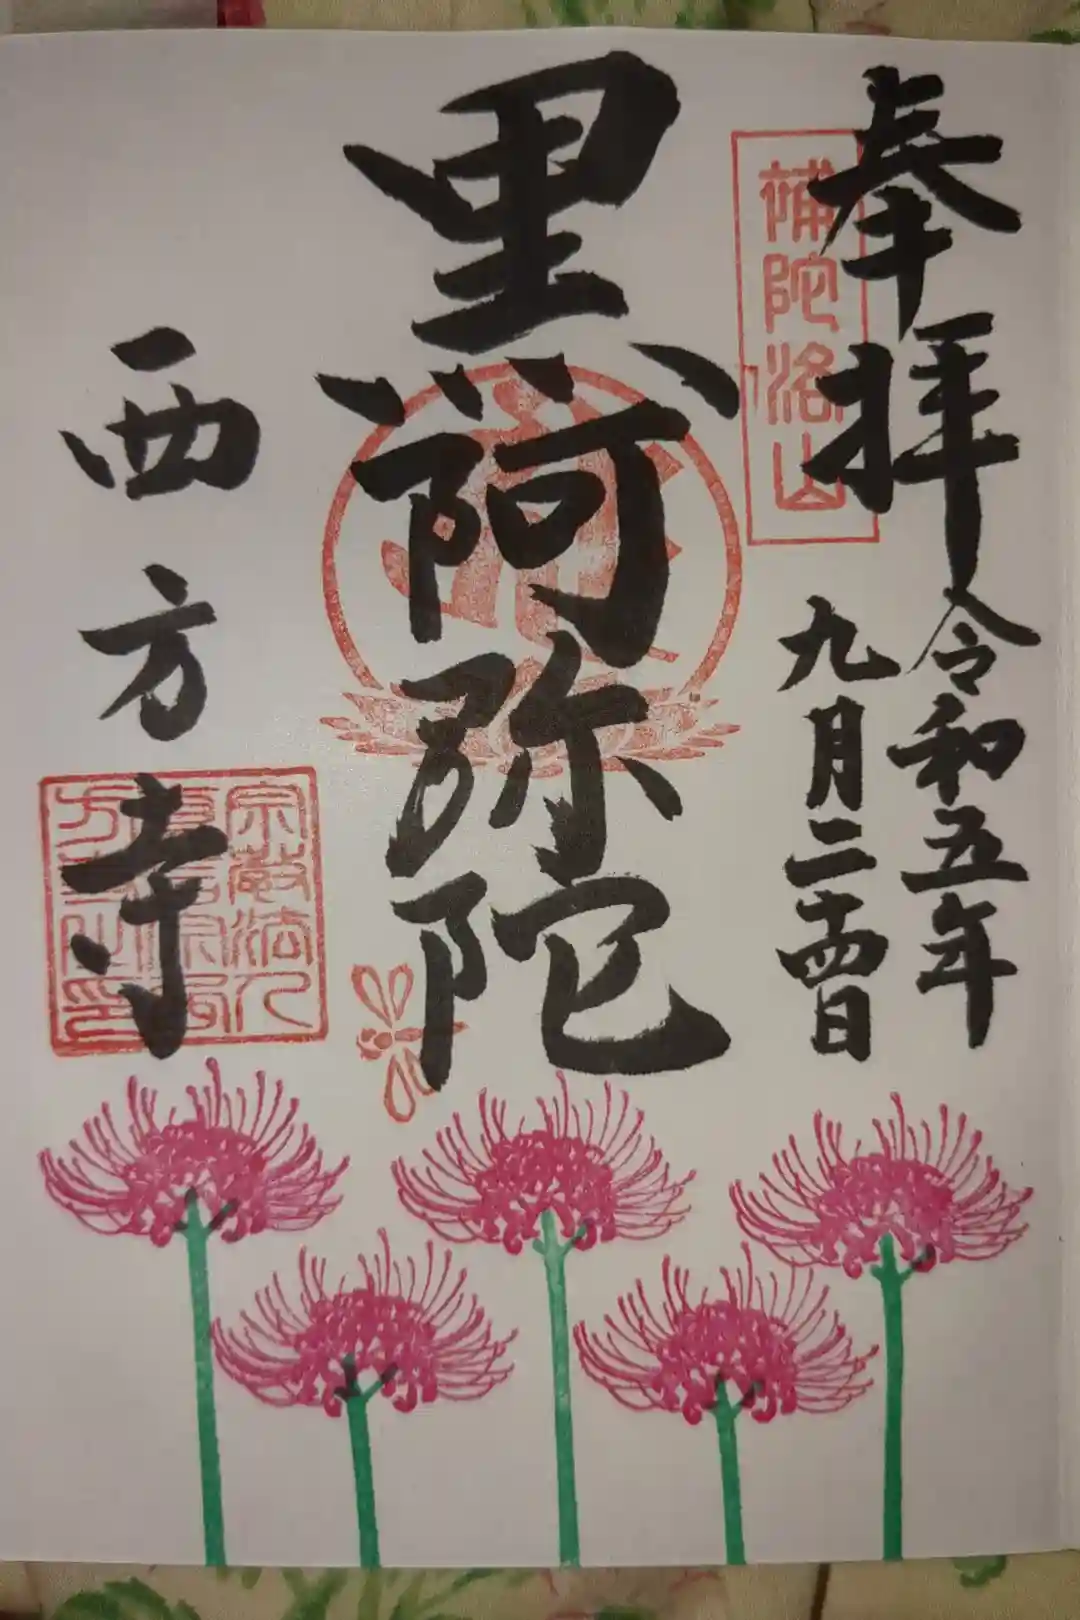 奉拝
令和五年
九月二十四日
補陀洛山
黒阿弥陀
西方寺